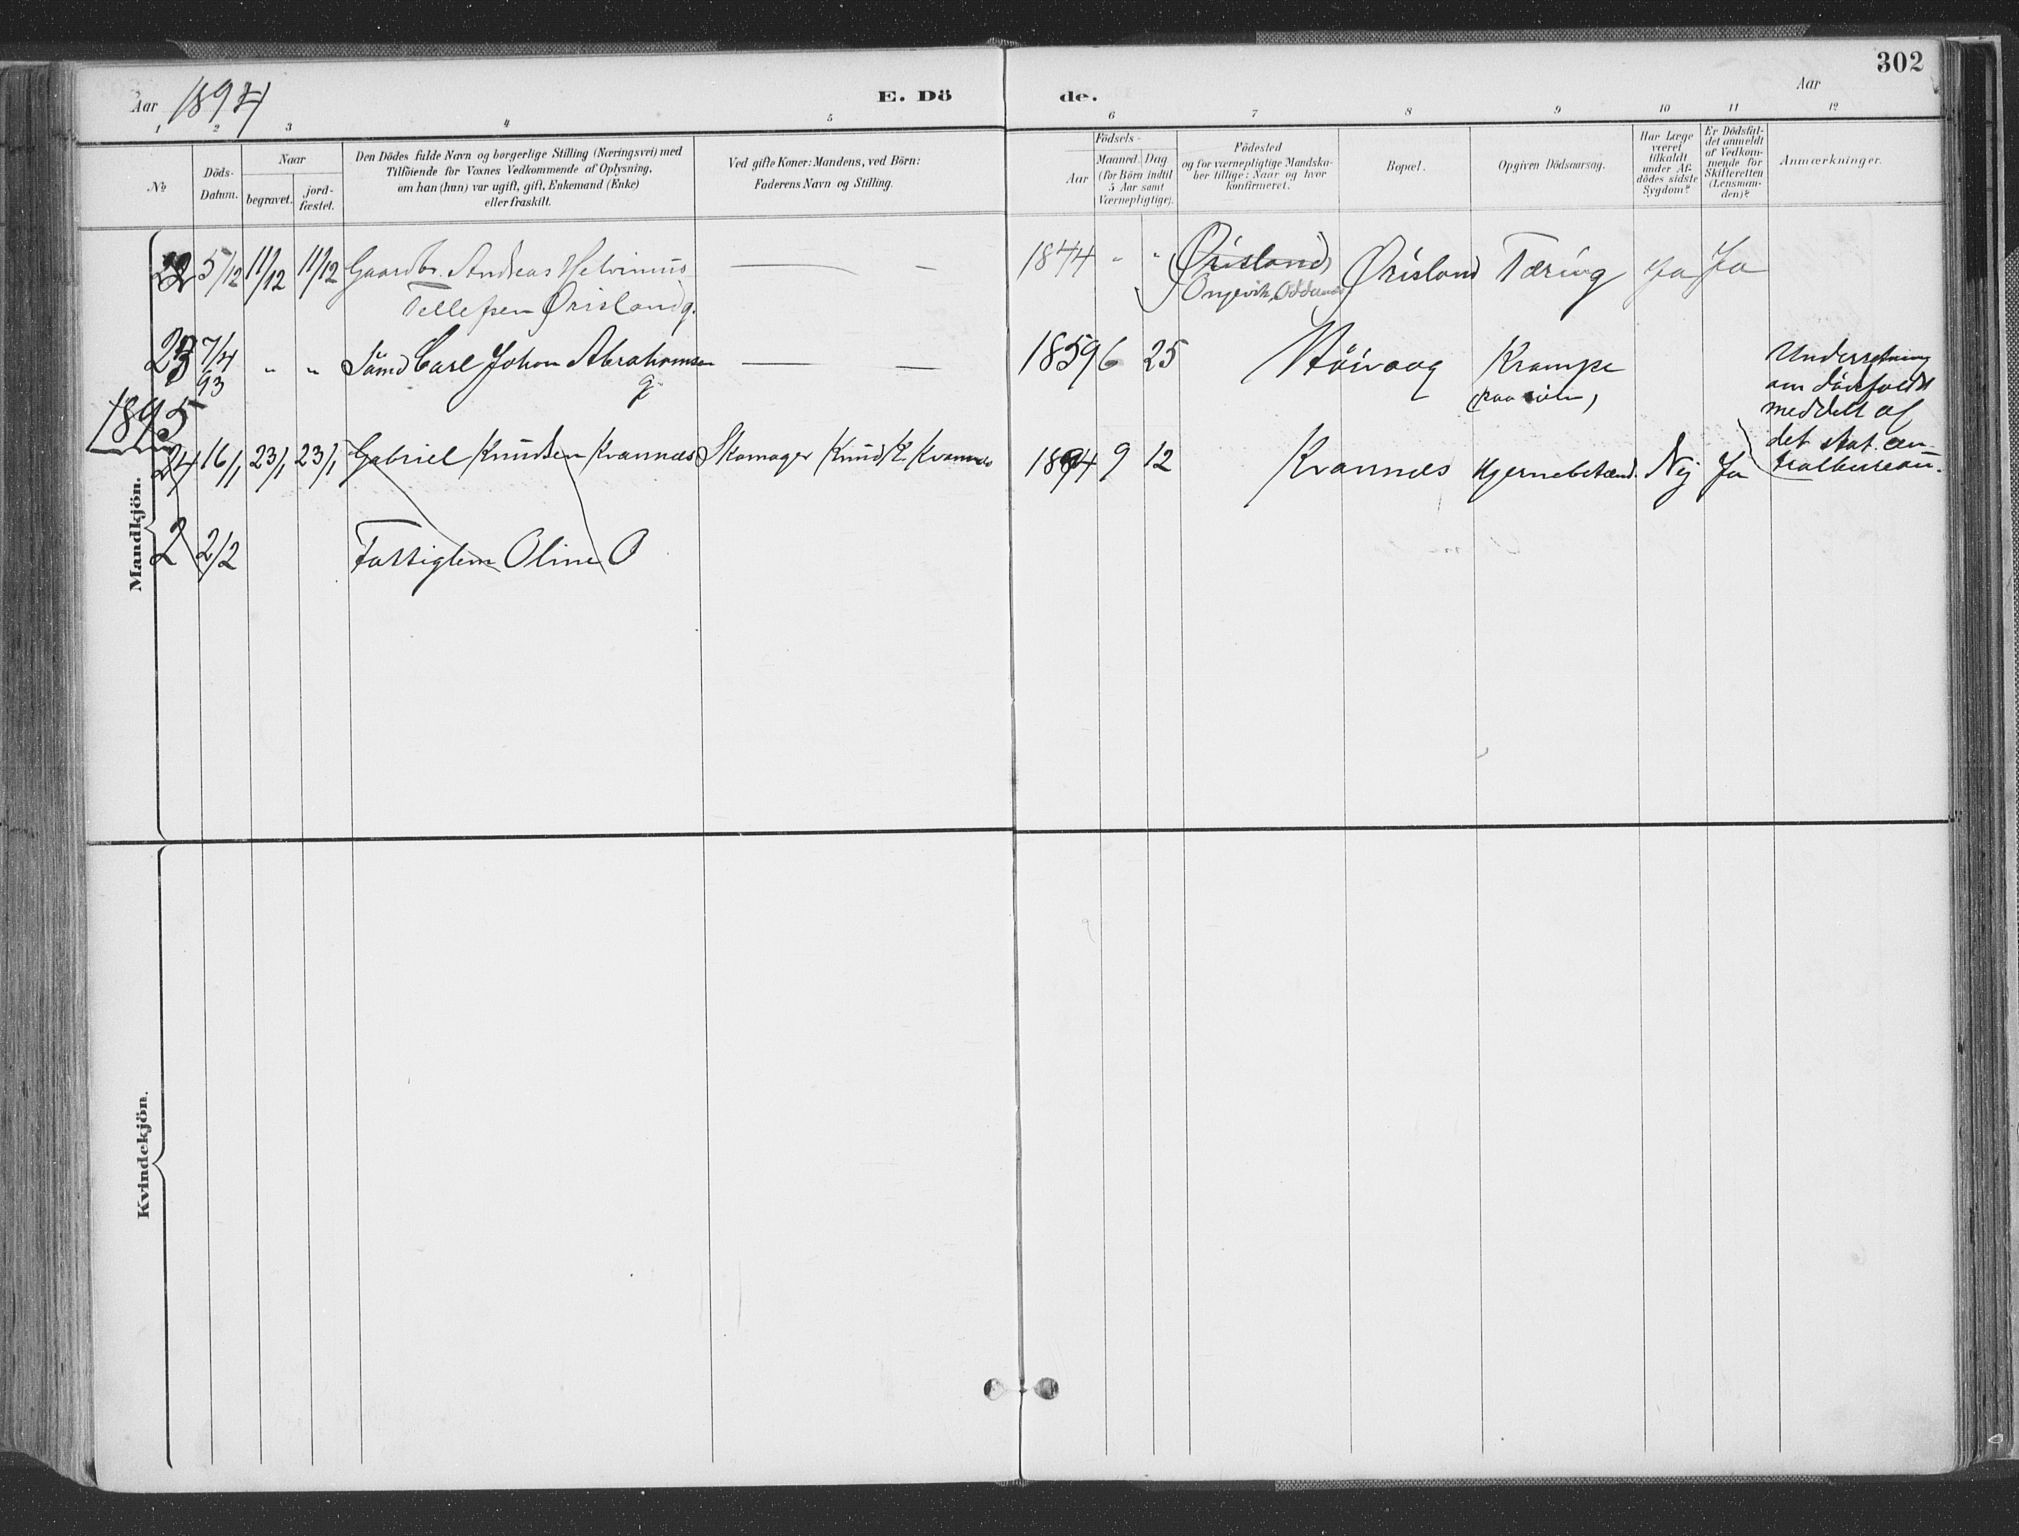 302
Aar 1894
E. Döde.
Aar
1 2 3 4 5 6 7 8 9 10 11 12
No
Döds-Datum.
Naar
begravet.
jord-fæstet.
Den Dödes fulde Navn og borgerlige Stilling (Næringsvei) med
Tilföiende for Voxnes Vedkommende af Oplysning,
om han (hun) var ugift, gift, Enkemand (Enke)
eller fraskilt.
Ved gifte Koner: Mandens, ved Börn:
Faderens Navn og Stilling.
Födsels-
Aar
Maaned. Dag
(for Börn indtil
5 Aar samt
Værnepligtige).
Födested
og for værnepligtige Mandska-
ber tillige: Naar og hvor
konfirmeret.
Bopæl.
Opgiven Dödsaarsag.
Har Læge
været
tilkaldt
under Af-
dödes sidste
Sygdom?
Er Dödsfal-
det anmeldt
af Vedkom-
mende for
Skifteretten
(Lensman-
den)?
Anmærkninger.
Mandkjön.
22 5/12 11/12 11/12 Gaardbr. Andreas Helvinius — — 1844 " " Ørisland Ørisland Tæring Ja Ja
Tellefsen Ørisland g.
23 7/4 93 " " Sömd Carl Johan Abrahamsen — — 1859 6 25 Höivaag Krampe
g
Underretning
om dödsfaldet
meddelt af
det stat. cen-
tralbureau.
1895
24 16/1 23/1 23/1 Gabriel Knudsen Kvannæs Skomager Knud K. Kvannæs 1894 9 12 Kvannæs Hjernebetænd. Nej Ja
2 2/2 Fattiglem Oline O
Kvindekjön.